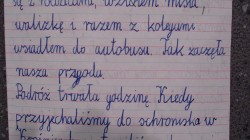 się z rodzicami, wziąłem misia,
walizkę i razem z kolegami
wsiadłem do autobusu. Tak zaczęła
nasza przygoda.
Podróż trwała godzinę. Kiedy
przyjechaliśmy do schroniska w